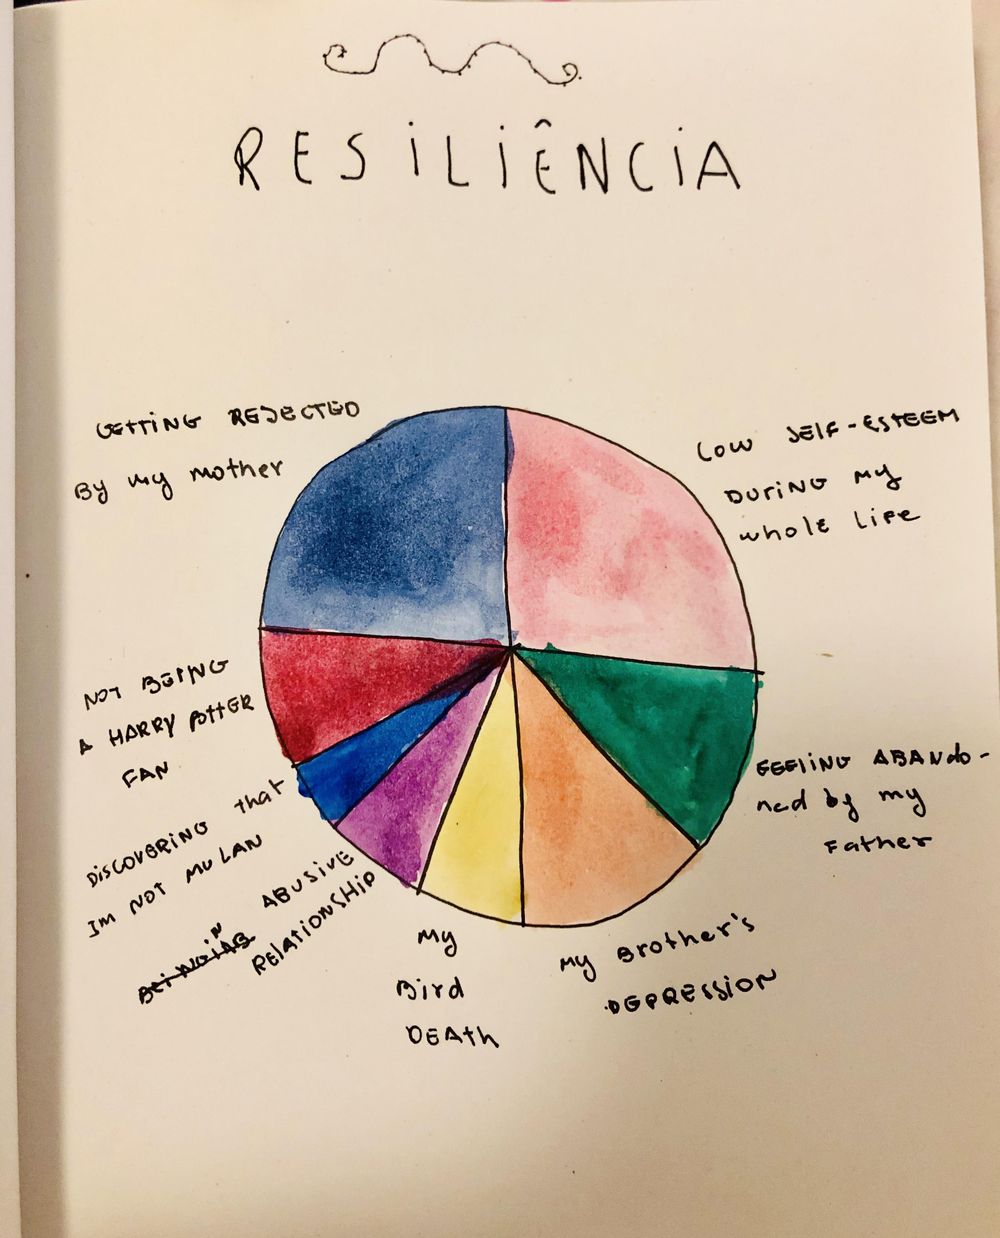 RESILIÊNCIA
GETTING REJECTED
By my mother
LOW SELF-ESTEEM
DURING My
whole Life
NOT BEING
A HARRY POTTER
FAN
FEELING ABANDO-
ned by my
Father
DISCOVERING that
IM NOT MULAN
IN ABUSIVE
RELATIONSHIP
My
Bird
DEATH
My Brother's
DEPRESSION